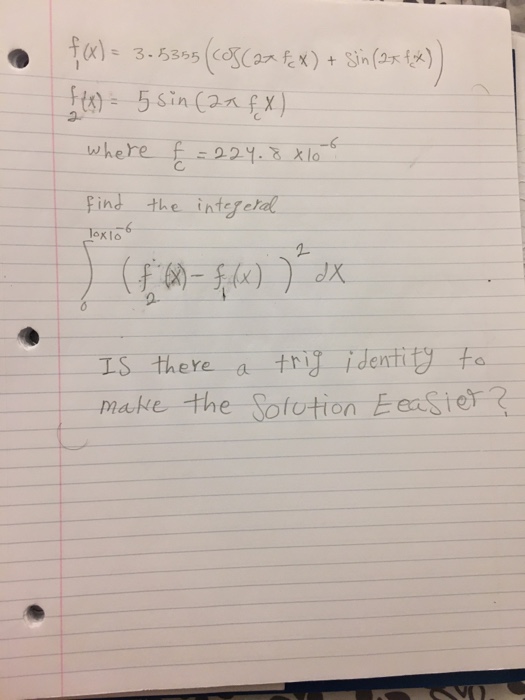 f₁(x) = 3.5355 (cos(2π f_c x) + sin(2π f_c x))
f₂(x) = 5 sin(2π f_c x)
where f_c = 224.8 x10⁻⁶
find the integeral
∫₀^(10x10⁻⁶) (f₂(x) - f₁(x))² dx
IS there a trig identity to
make the Solution Eeasier?